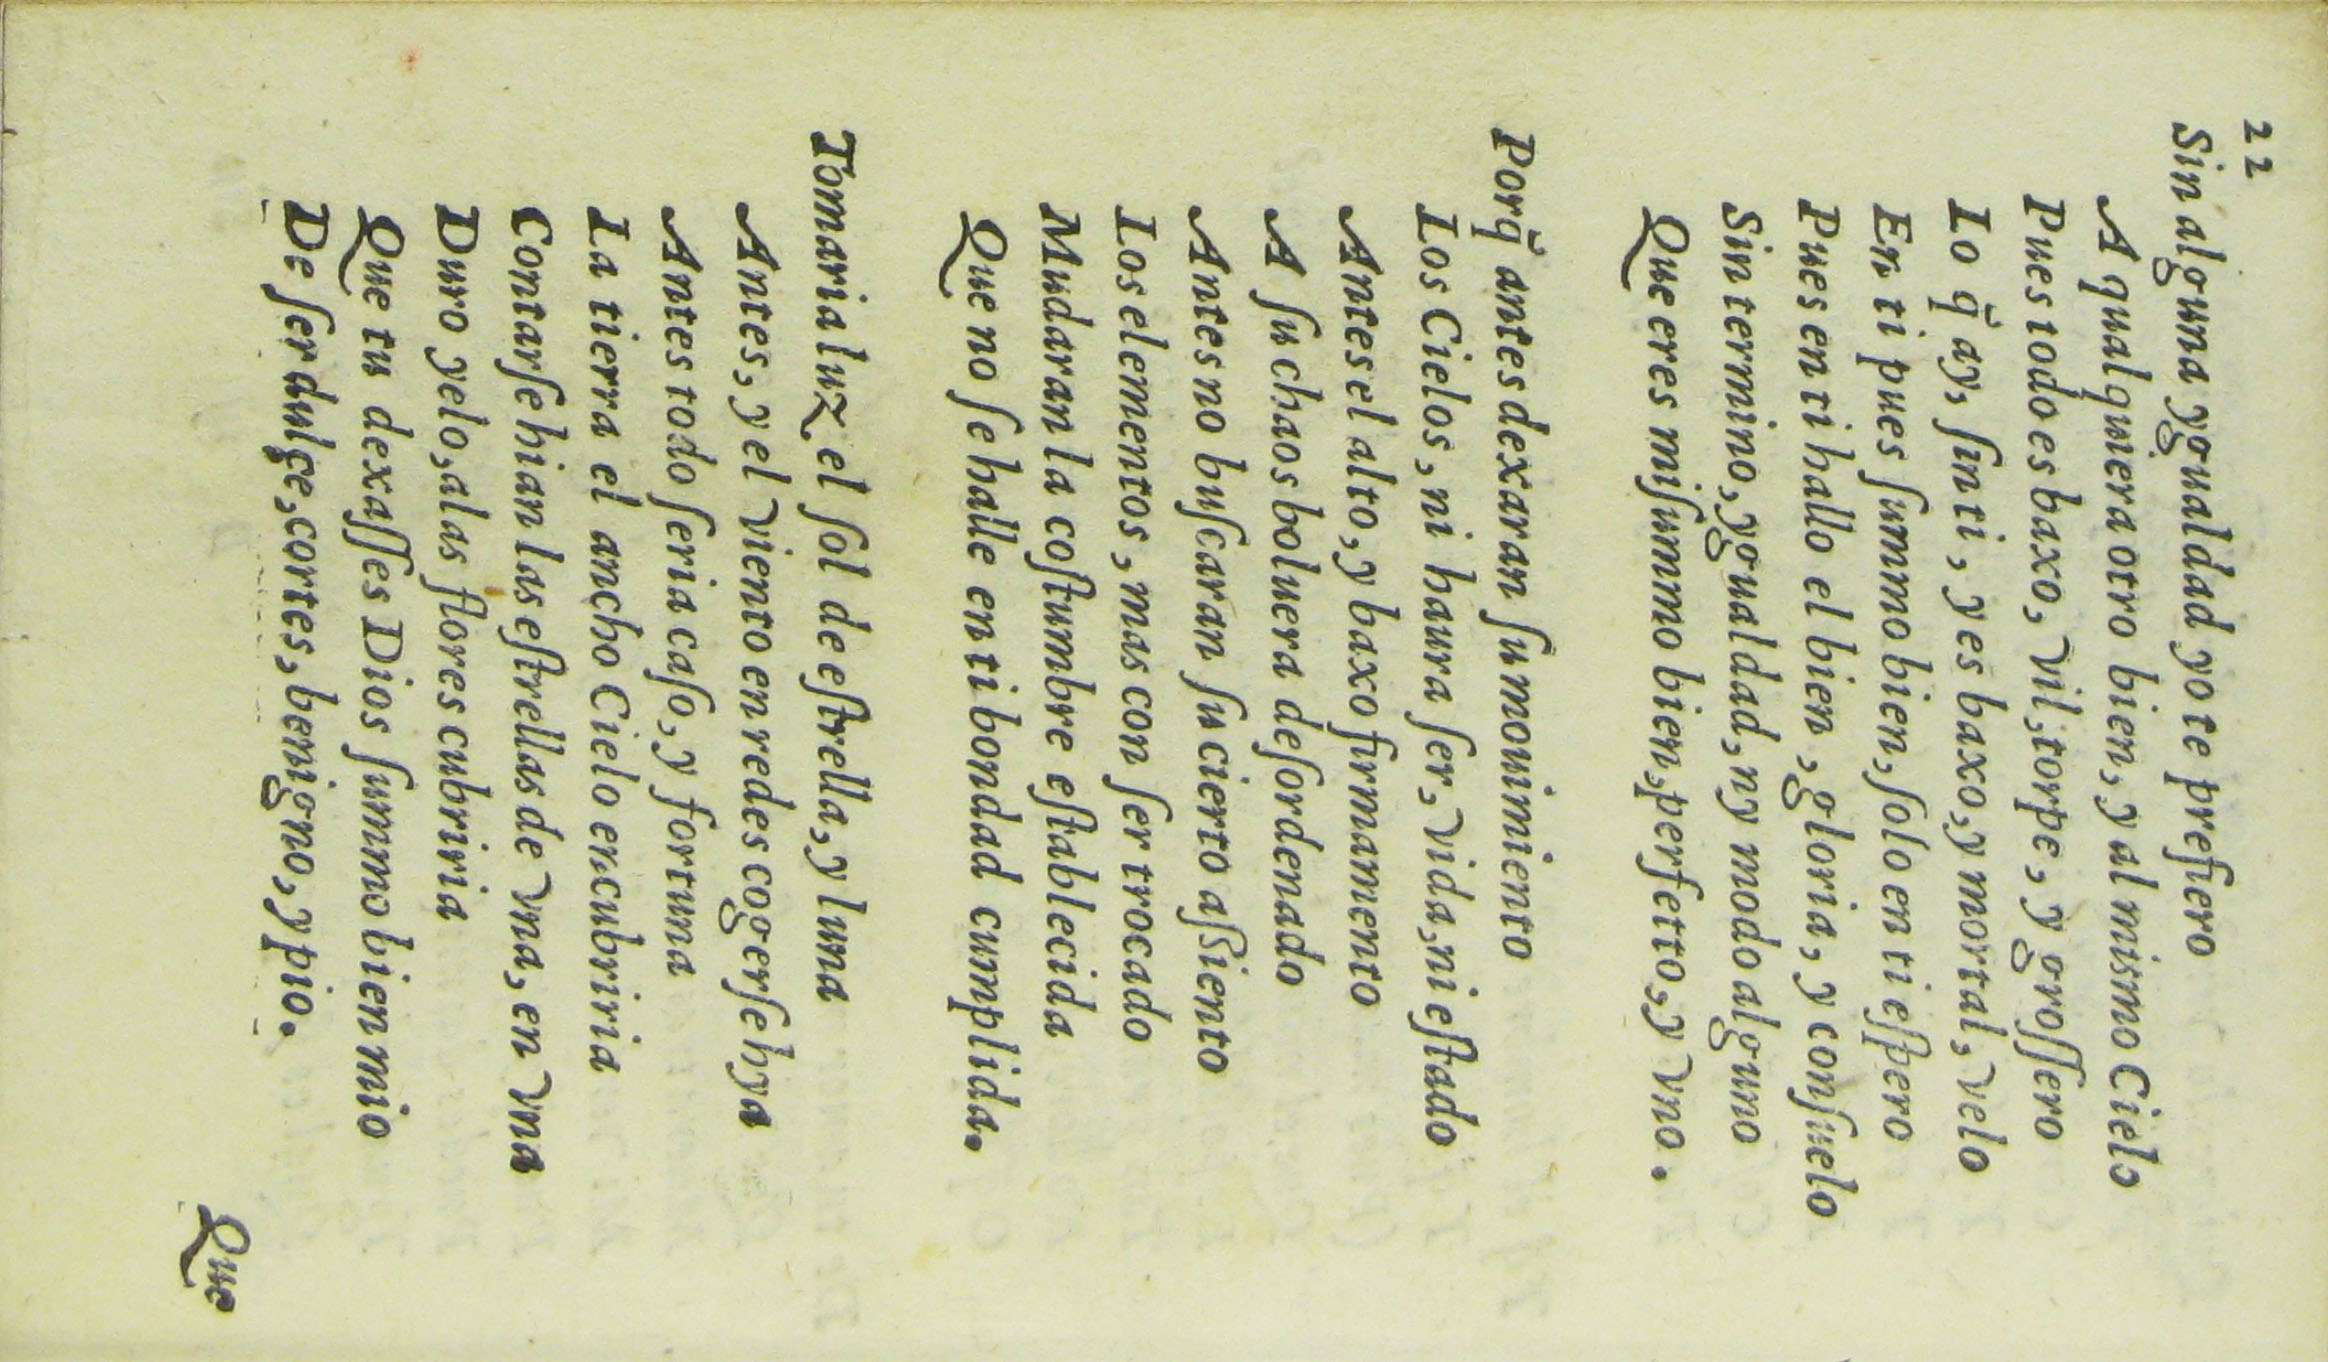 22
Sin alguna ygualdad yo te prefiero
A qualquiera otro bien, y al mismo Cielo
Pues todo es baxo, vil, torpe, y groſſero
Lo q̃ ay, ſin ti, y es baxo, y mortal, velo
En ti pues ſummo bien, ſolo en ti eſpero
Pues en ti hallo el bien, gloria, y conſuelo
Sin termino, ygualdad, ny modo alguno
Que eres mi ſummo bien, perfetto, y vno.
Porq̃ antes dexaran ſu mouimiento
Los Cielos, ni haura ſer, vida, ni eſtado
Antes el alto, y baxo firmamento
A ſu chaos boluera deſordenado
Antes no buſcaran ſu cierto aſsiento
Los elementos, mas con ſer trocado
Mudaran la coſtumbre eſtablecida
Que no ſe halle en ti bondad cumplida.
Tomaria luz el ſol de eſtrella, y luna
Antes, y el viento en redes cogerſehya
Antes todo ſeria caſo, y fortuna
La tierra el ancho Cielo encubriria
Contarſehian las eſtrellas de vna, en vna
Duro yelo, alas flores cubriria
Que tu dexaſſes Dios ſummo bien mio
De ſer dulçe, cortes, benigno, y pio.
Que